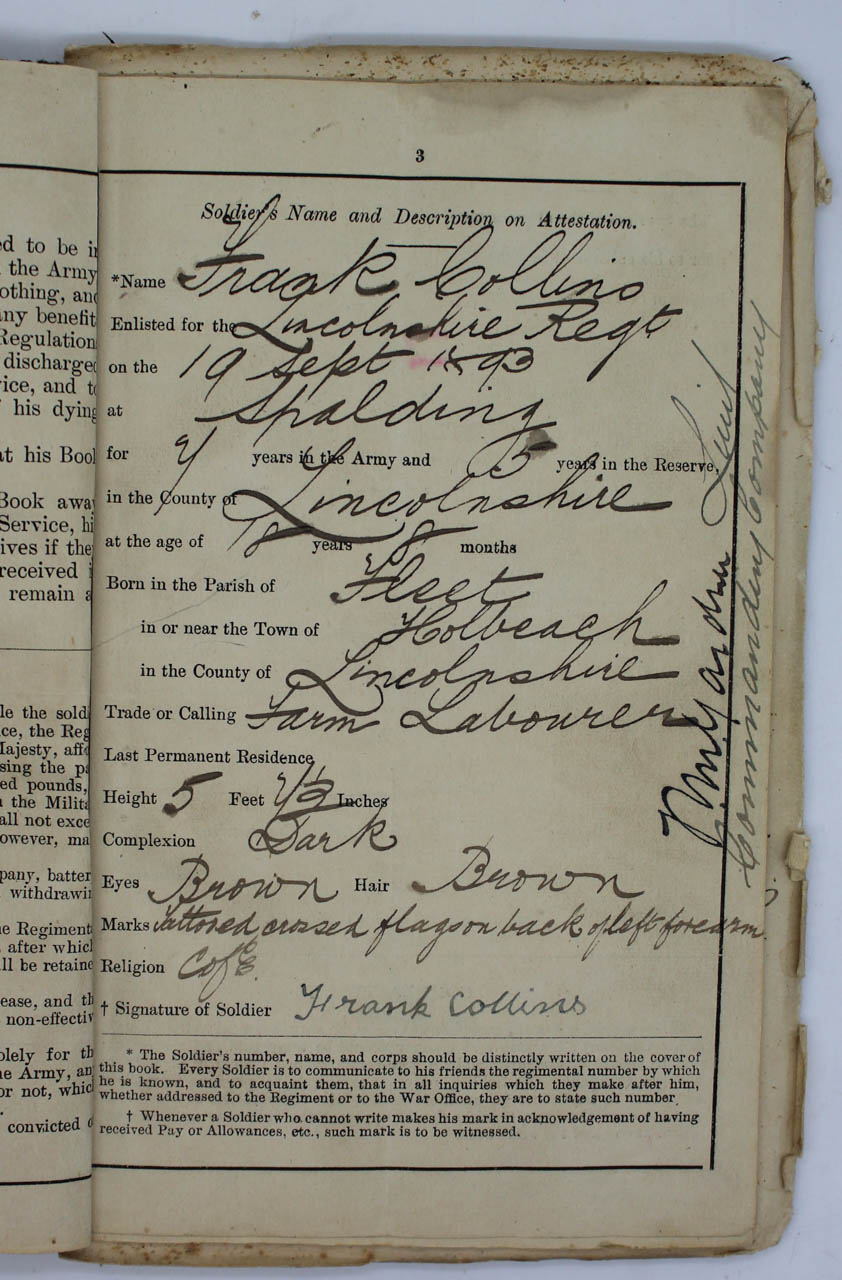 ed to be in
the Army
othing, and
any benefit
Regulation
discharged
ice, and to
his dying
at his Book
Book away
Service, hi
ives if the
received i
remain a
le the sold
ce, the Reg
Majesty, aff
sing the p
ed pounds,
n the Milit
all not exce
owever, ma
pany, batter
withdrawin
he Regiment
after which
ll be retaine
ease, and th
non-effectiv
olely for th
he Army, an
or not, whic
convicted
3
Soldier's Name and Description on Attestation.
*Name Frank Collins
Enlisted for the Lincolnshire Regt
on the 19 Sept 1893
at Spalding
for 7 years in the Army and 5 years in the Reserve,
in the County of Lincolnshire
at the age of 18 years 8 months
Born in the Parish of Fleet
in or near the Town of Holbeach
in the County of Lincolnshire
Trade or Calling Farm Labourer
Last Permanent Residence
Height 5 Feet Inches
Complexion Dark
Eyes Brown Hair Brown
Marks tattooed crossed flags on back of left forearm.
Religion C of E.
† Signature of Soldier Frank Collins
* The Soldier's number, name, and corps should be distinctly written on the cover of
this book. Every Soldier is to communicate to his friends the regimental number by which
he is known, and to acquaint them, that in all inquiries which they make after him,
whether addressed to the Regiment or to the War Office, they are to state such number.
† Whenever a Soldier who cannot write makes his mark in acknowledgement of having
received Pay or Allowances, etc., such mark is to be witnessed.
Lieut
Commanding Company